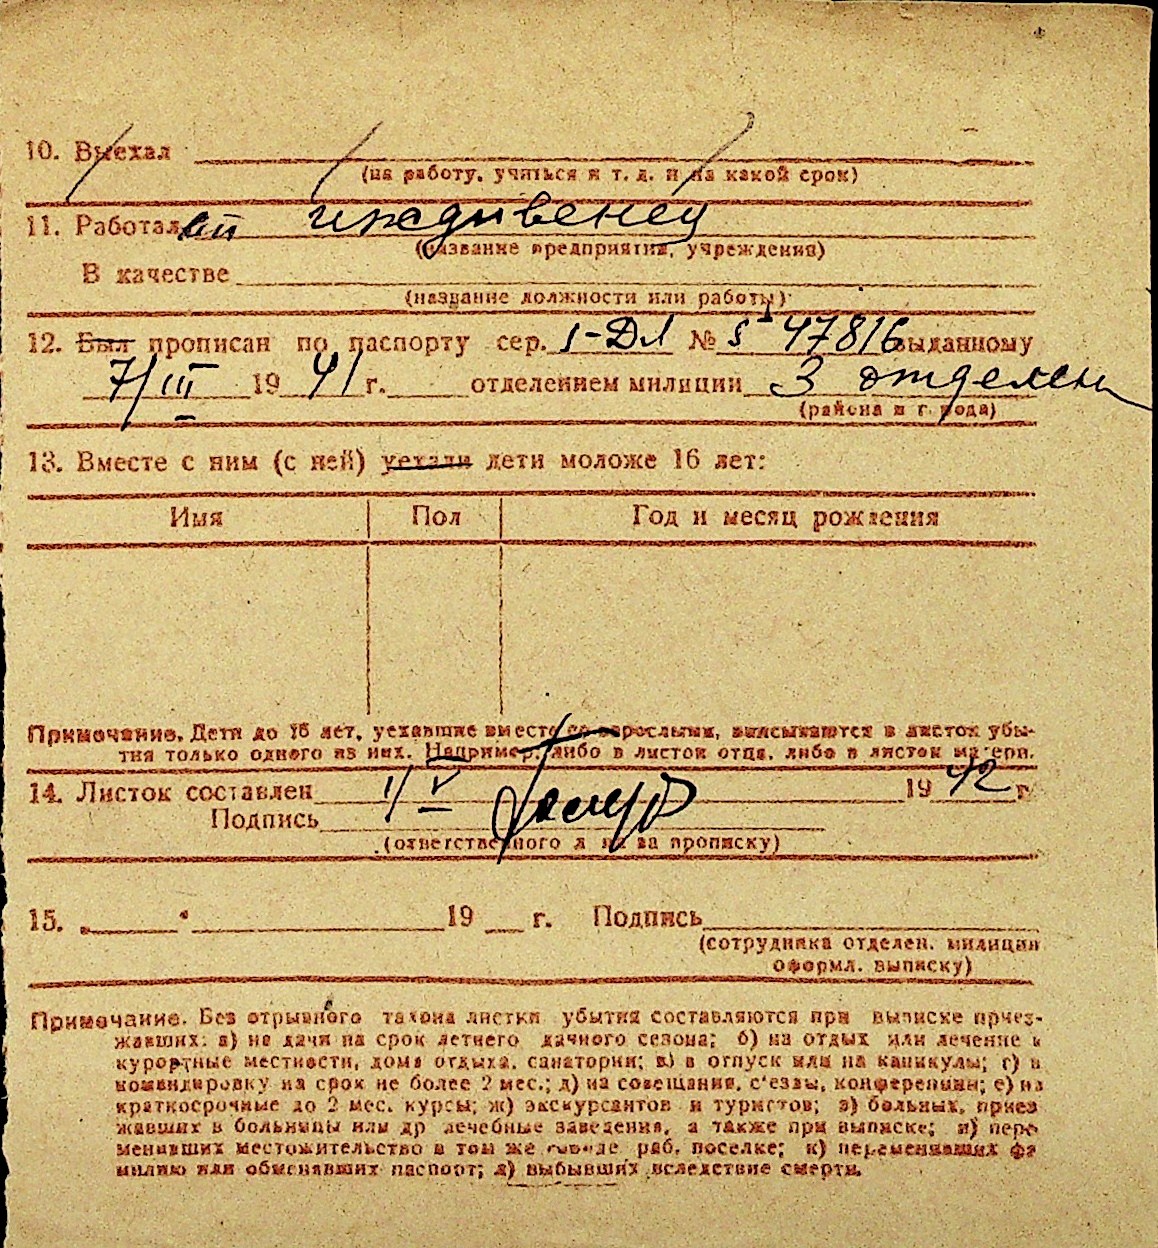 10. Выехал
(на работу, учиться и т. д. и на какой срок)
11. Работал иждивенец
(название предприятия, учреждения)
В качестве
(название должности или работы)
12. Был прописан по паспорту сер. № 47816 выданному
7/III 1941 г. отделением милиции 3 отделен
(района и города)
13. Вместе с ним (с ней) уехали дети моложе 16 лет:
Имя Пол Год и месяц рождения
Примечание. Дети до 16 лет, уехавшие вместе со взрослыми, вписываются в листок убы-
тия только одного из них. Например, либо в листок отца, либо в листок матери.
14. Листок составлен 1/V 1942 г
Подпись
(ответственного за прописку)
15. " " 19 г. Подпись
(сотрудника отделен. милиции
оформл. выписку)
Примечание. Без отрывного талона листки убытия составляются при выписке приез-
жавших: а) на дачи на срок летнего дачного сезона; б) на отдых или лечение в
курортные местности, дома отдыха, санатории; в) в отпуск или на каникулы; г) в
командировку на срок не более 2 мес.; д) на совещания, с'езды, конференции; е) на
краткосрочные до 2 мес. курсы; ж) экскурсантов и туристов; з) больных, приез
жавших в больницы или др лечебные заведения, а также при выписке; и) пере
менивших местожительство в том же городе раб. поселке; к) переменивших фа
милию или обменявших паспорт; л) выбывших вследствие смерти.